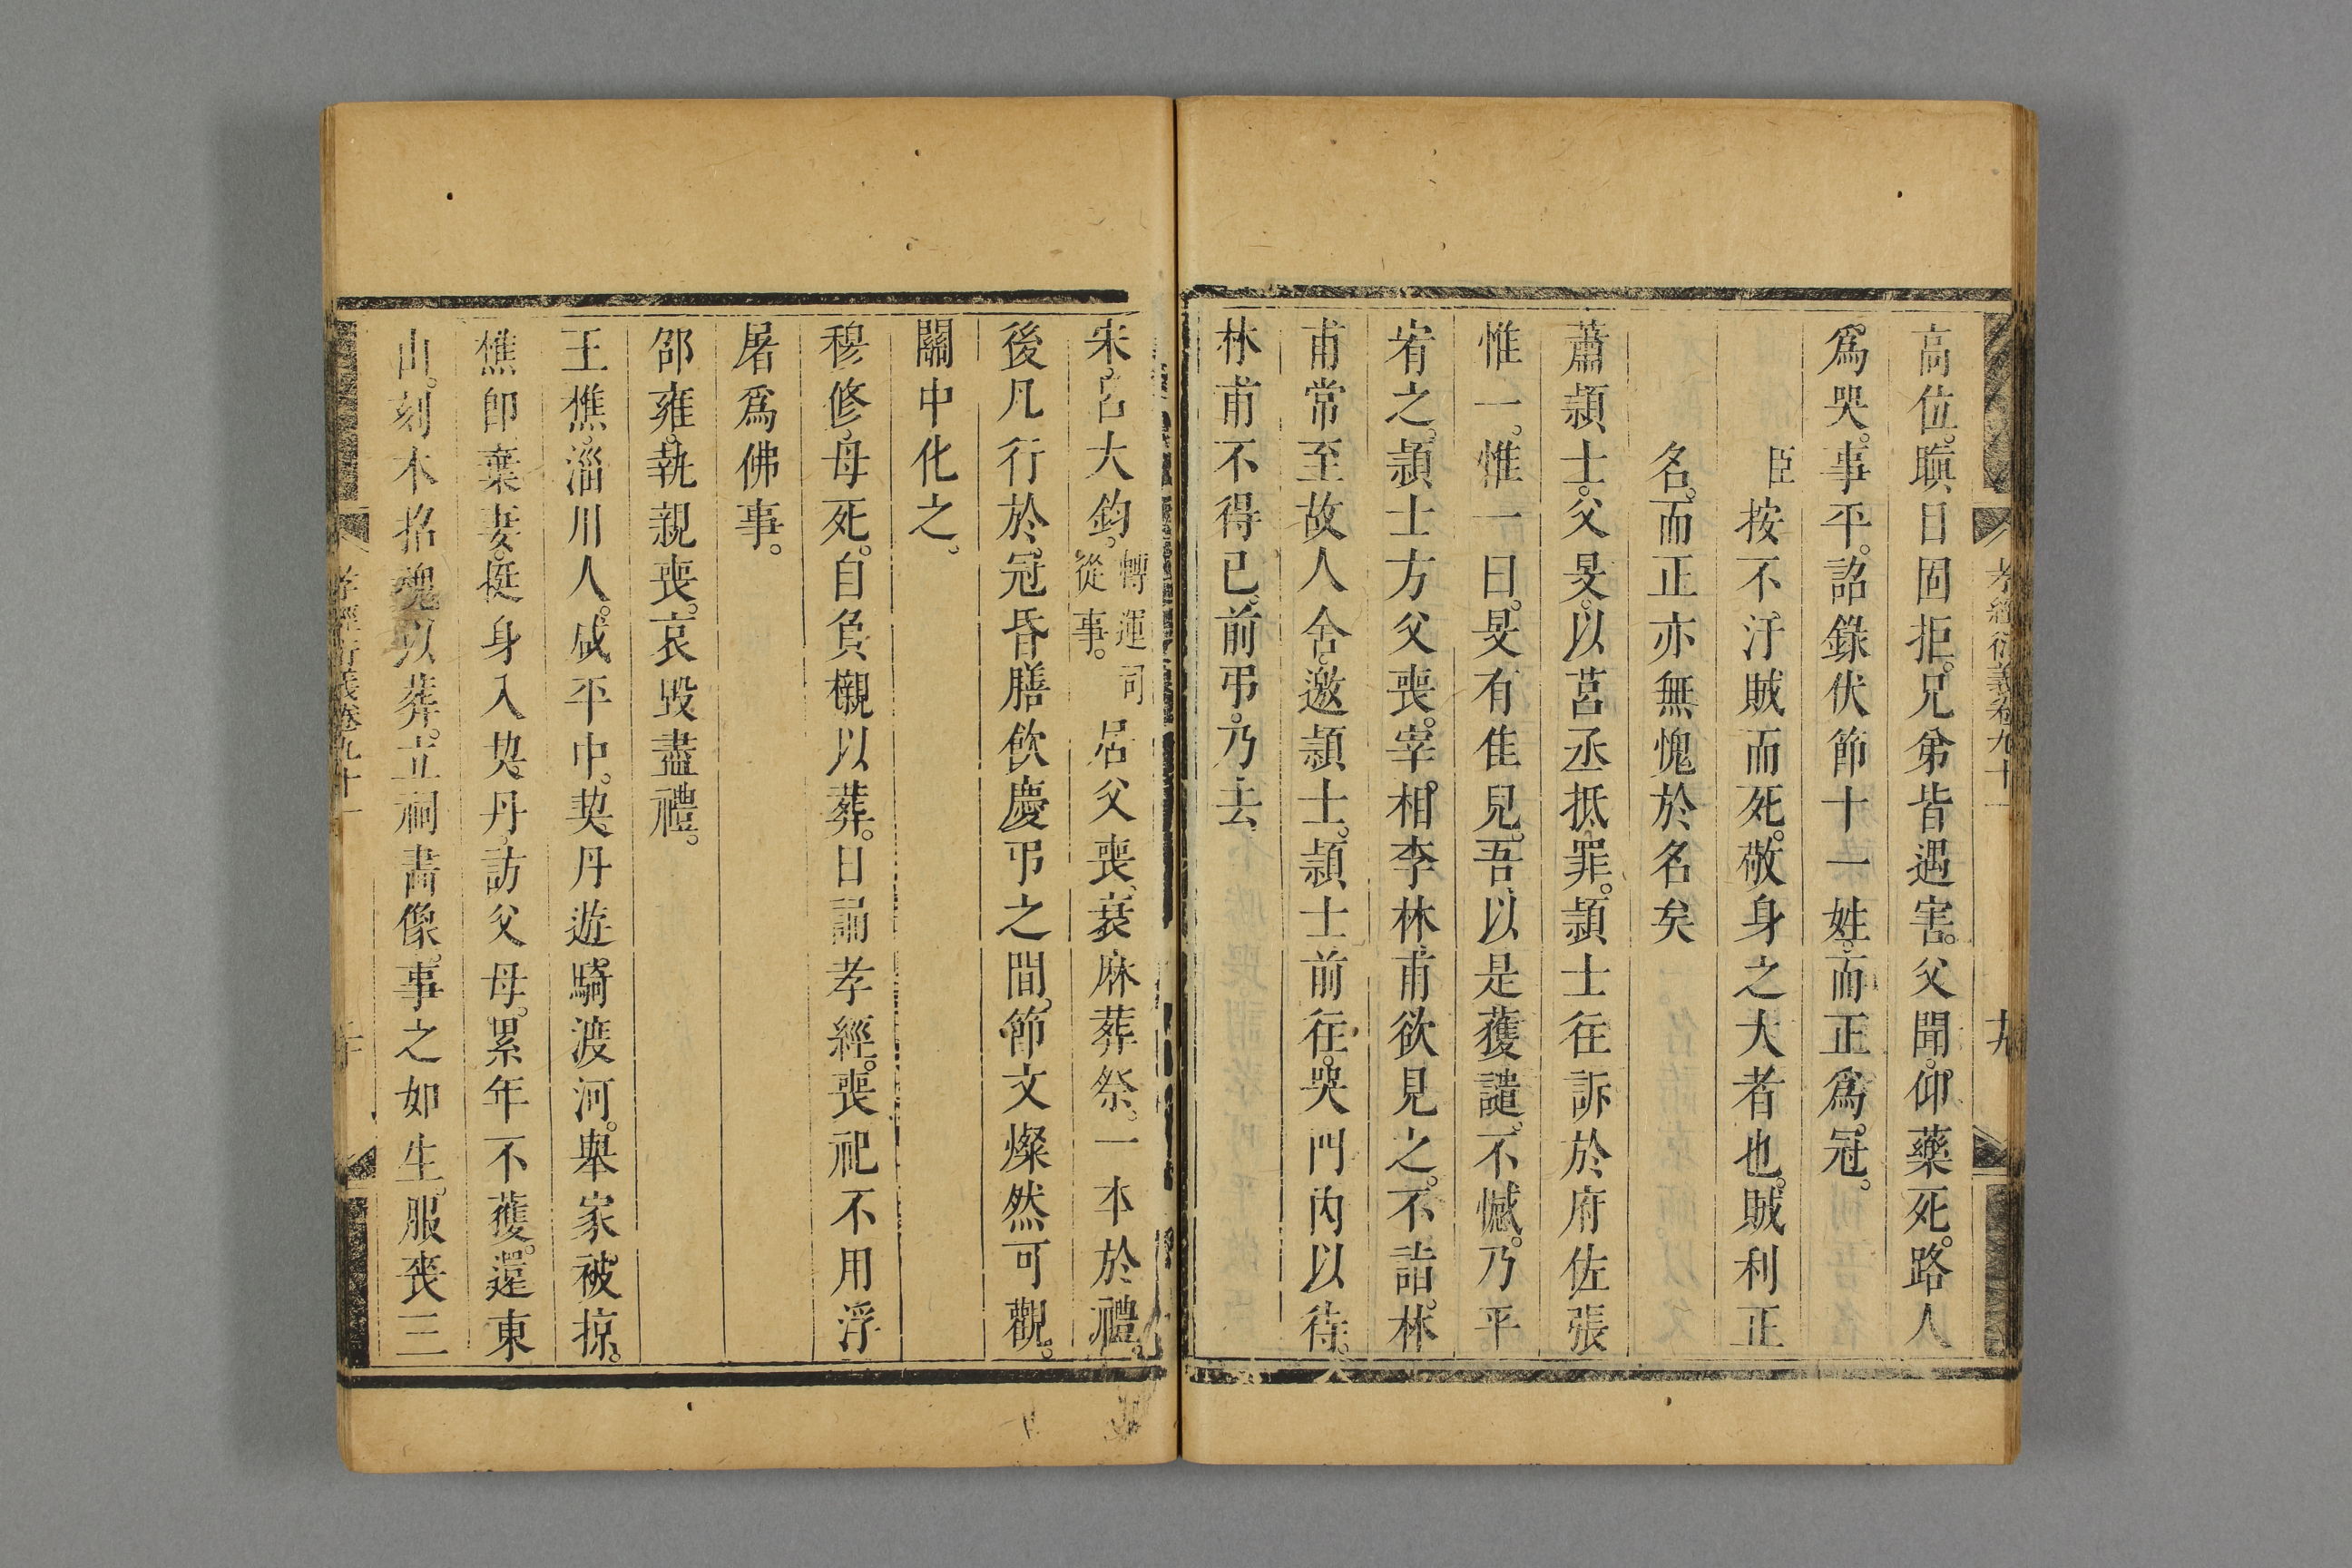 高位。瞋目固拒。兄弟皆遇害。父聞。仰藥死。路人
爲哭。事平。詔錄伏節十一姓。而正爲冠。
臣按。不汙賊而死。敬身之大者也。賊利正
名。而正亦無愧於名矣
蕭頴士。父旻。以莒丞抵罪。頴士往訴於府佐張
惟一。惟一曰。旻有佳兒。吾以是獲譴。不憾。乃平
宥之。頴士方父喪。宰相李林甫欲見之。不詣。林
甫常至故人舍。邀頴士。頴士前往。哭門內以待。
林甫不得已。前弔。乃去
孝經衍義卷九十一
十九
宋。呂大鈞。轉運司從事。居父喪。衰麻葬祭。一本於禮。
後凡行於。冠昏膳飲慶弔之間。節文燦然可觀。
關中化之。
穆修。母死。自負櫬以葬。日誦孝經。喪祀不用浮
屠爲佛事。
邵雍。執親喪。哀毀盡禮。
王樵。淄川人。咸平中。契丹遊騎渡河。舉家被掠。
樵卽棄妻。挺身入契丹。訪父母。累年不獲。還東
山。刻木招魂以葬。立祠畵像。事之如生。服喪三
孝經衍義卷九十一
二十